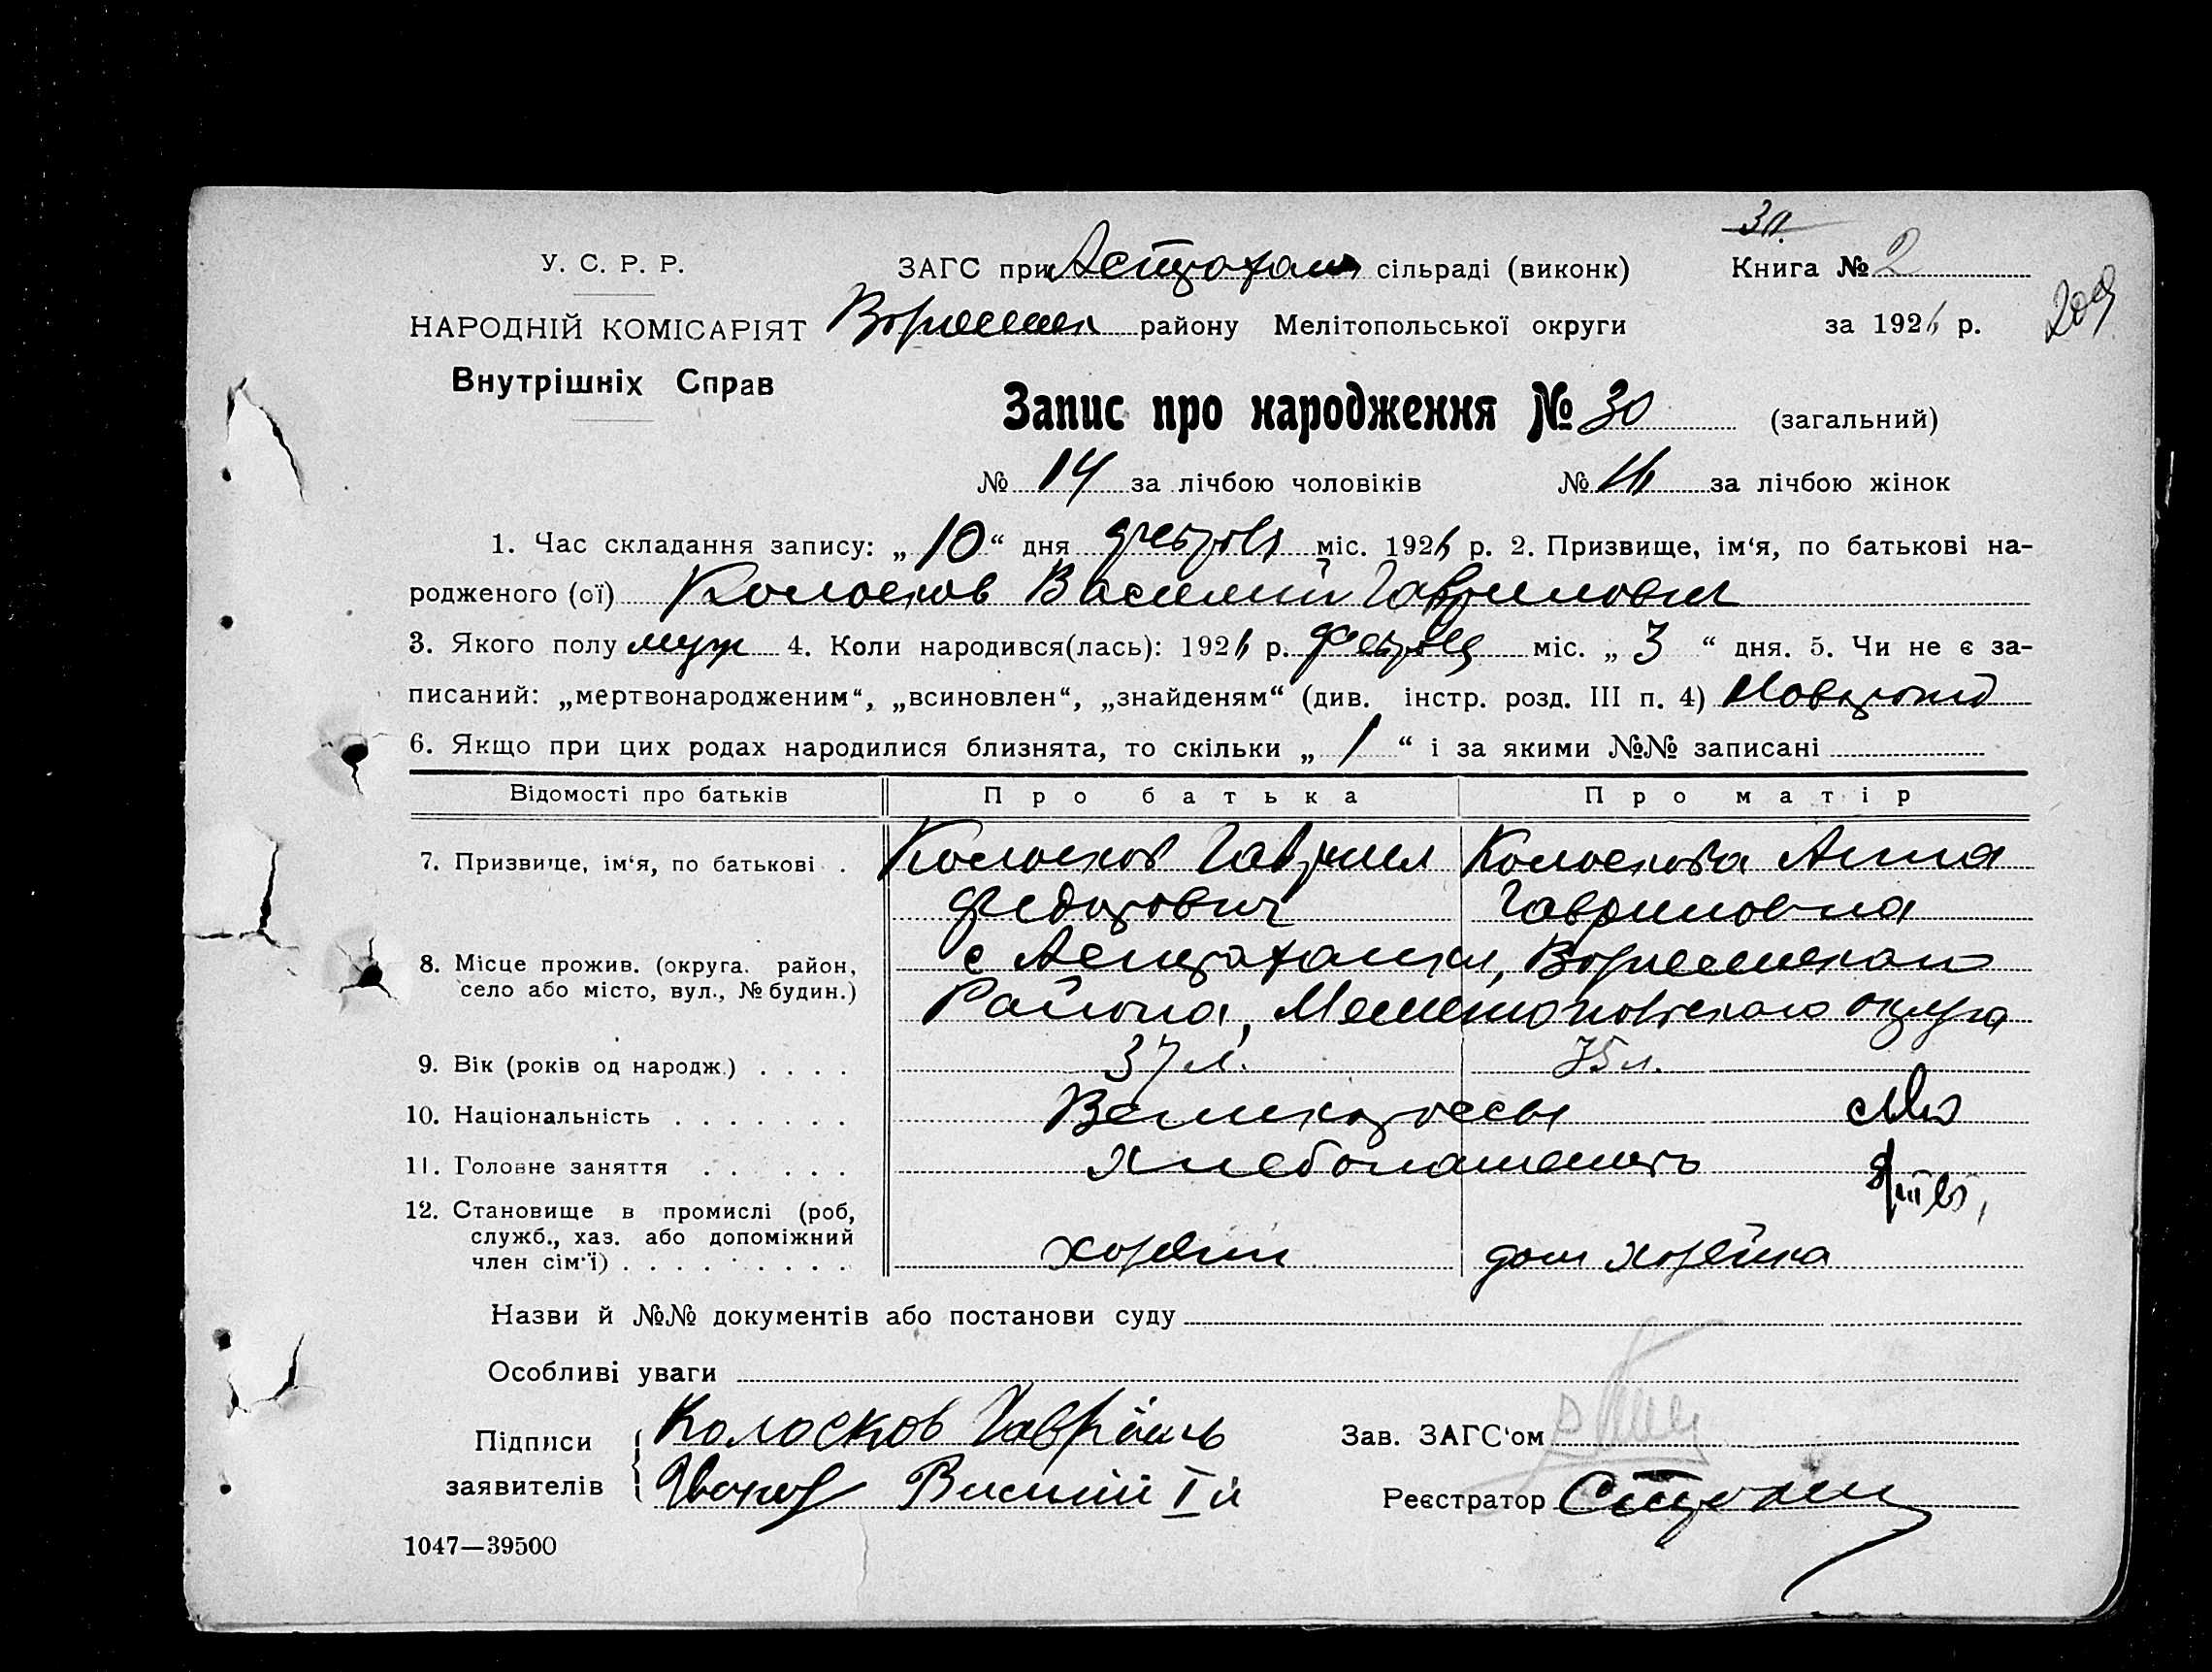 30.
У. С. Р. Р. ЗАГС при Астрахан сільраді (виконк) Книга № 2
НАРОДНІЙ КОМІСАРІЯТ района району Мелітопольської округи за 1926 р. 209
Внутрішніх Справ
Запис про народження № 30 (загальний)
№ 14 за лічбою чоловіків № 16 за лічбою жінок
1. Час складання запису: „ 10 “ дня февраля міс. 1926 р. 2. Призвище, ім‘я, по батькові на-
родженого (ої) Колосков Василий Гаврилович
3. Якого полу муж 4. Коли народився(лась): 1926 р. февраля міс. „ 3 “ дня. 5. Чи не є за-
писаний: „мертвонародженим“, „всиновлен“, „знайденям“ (див. інстр. розд. III п. 4)
6. Якщо при цих родах народилися близнята, то скільки „ 1 “ і за якими №№ записані
Відомості про батьків Про батька Про матір
7. Призвище, ім‘я, по батькові . Колосков Гаврил Колоскова Анна
Федорович Гавриловна
8. Місце прожив. (округа. район, с Астраханка,
село або місто, вул., № будин.) Района, Мелитопольского округа
9. Вік (років од народж.) . . . . 37 л. 35 л.
10. Національність . . . . . . . Великороссы
11. Головне заняття . . . . . . Хлебопашество
12. Становище в промислі (роб,
служб., хаз. або допоміжний
член сім‘ї) . . . . . . . . . хозяин дом хозяйка
Назви й №№ документів або постанови суду
Особливі уваги
Підписи Колосков Гаврiилъ Зав. ЗАГС‘ом
заявителів Василий I й Реєстратор
1047—39500